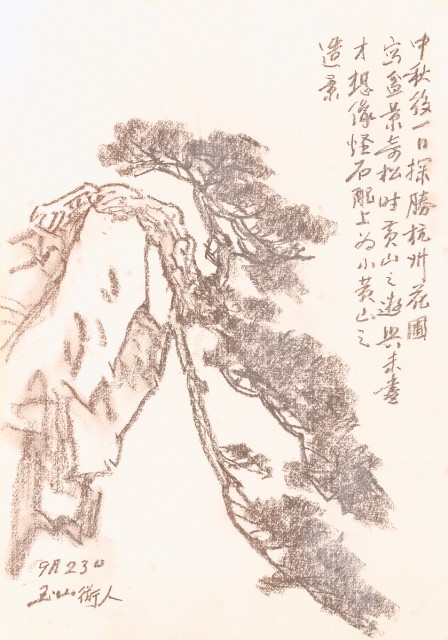 中秋後一日探勝杭州花圃
写盆景奇松时黄山之遊兴未盡
才想像怪石配上为小黄山之
造景
9月23日
玉山